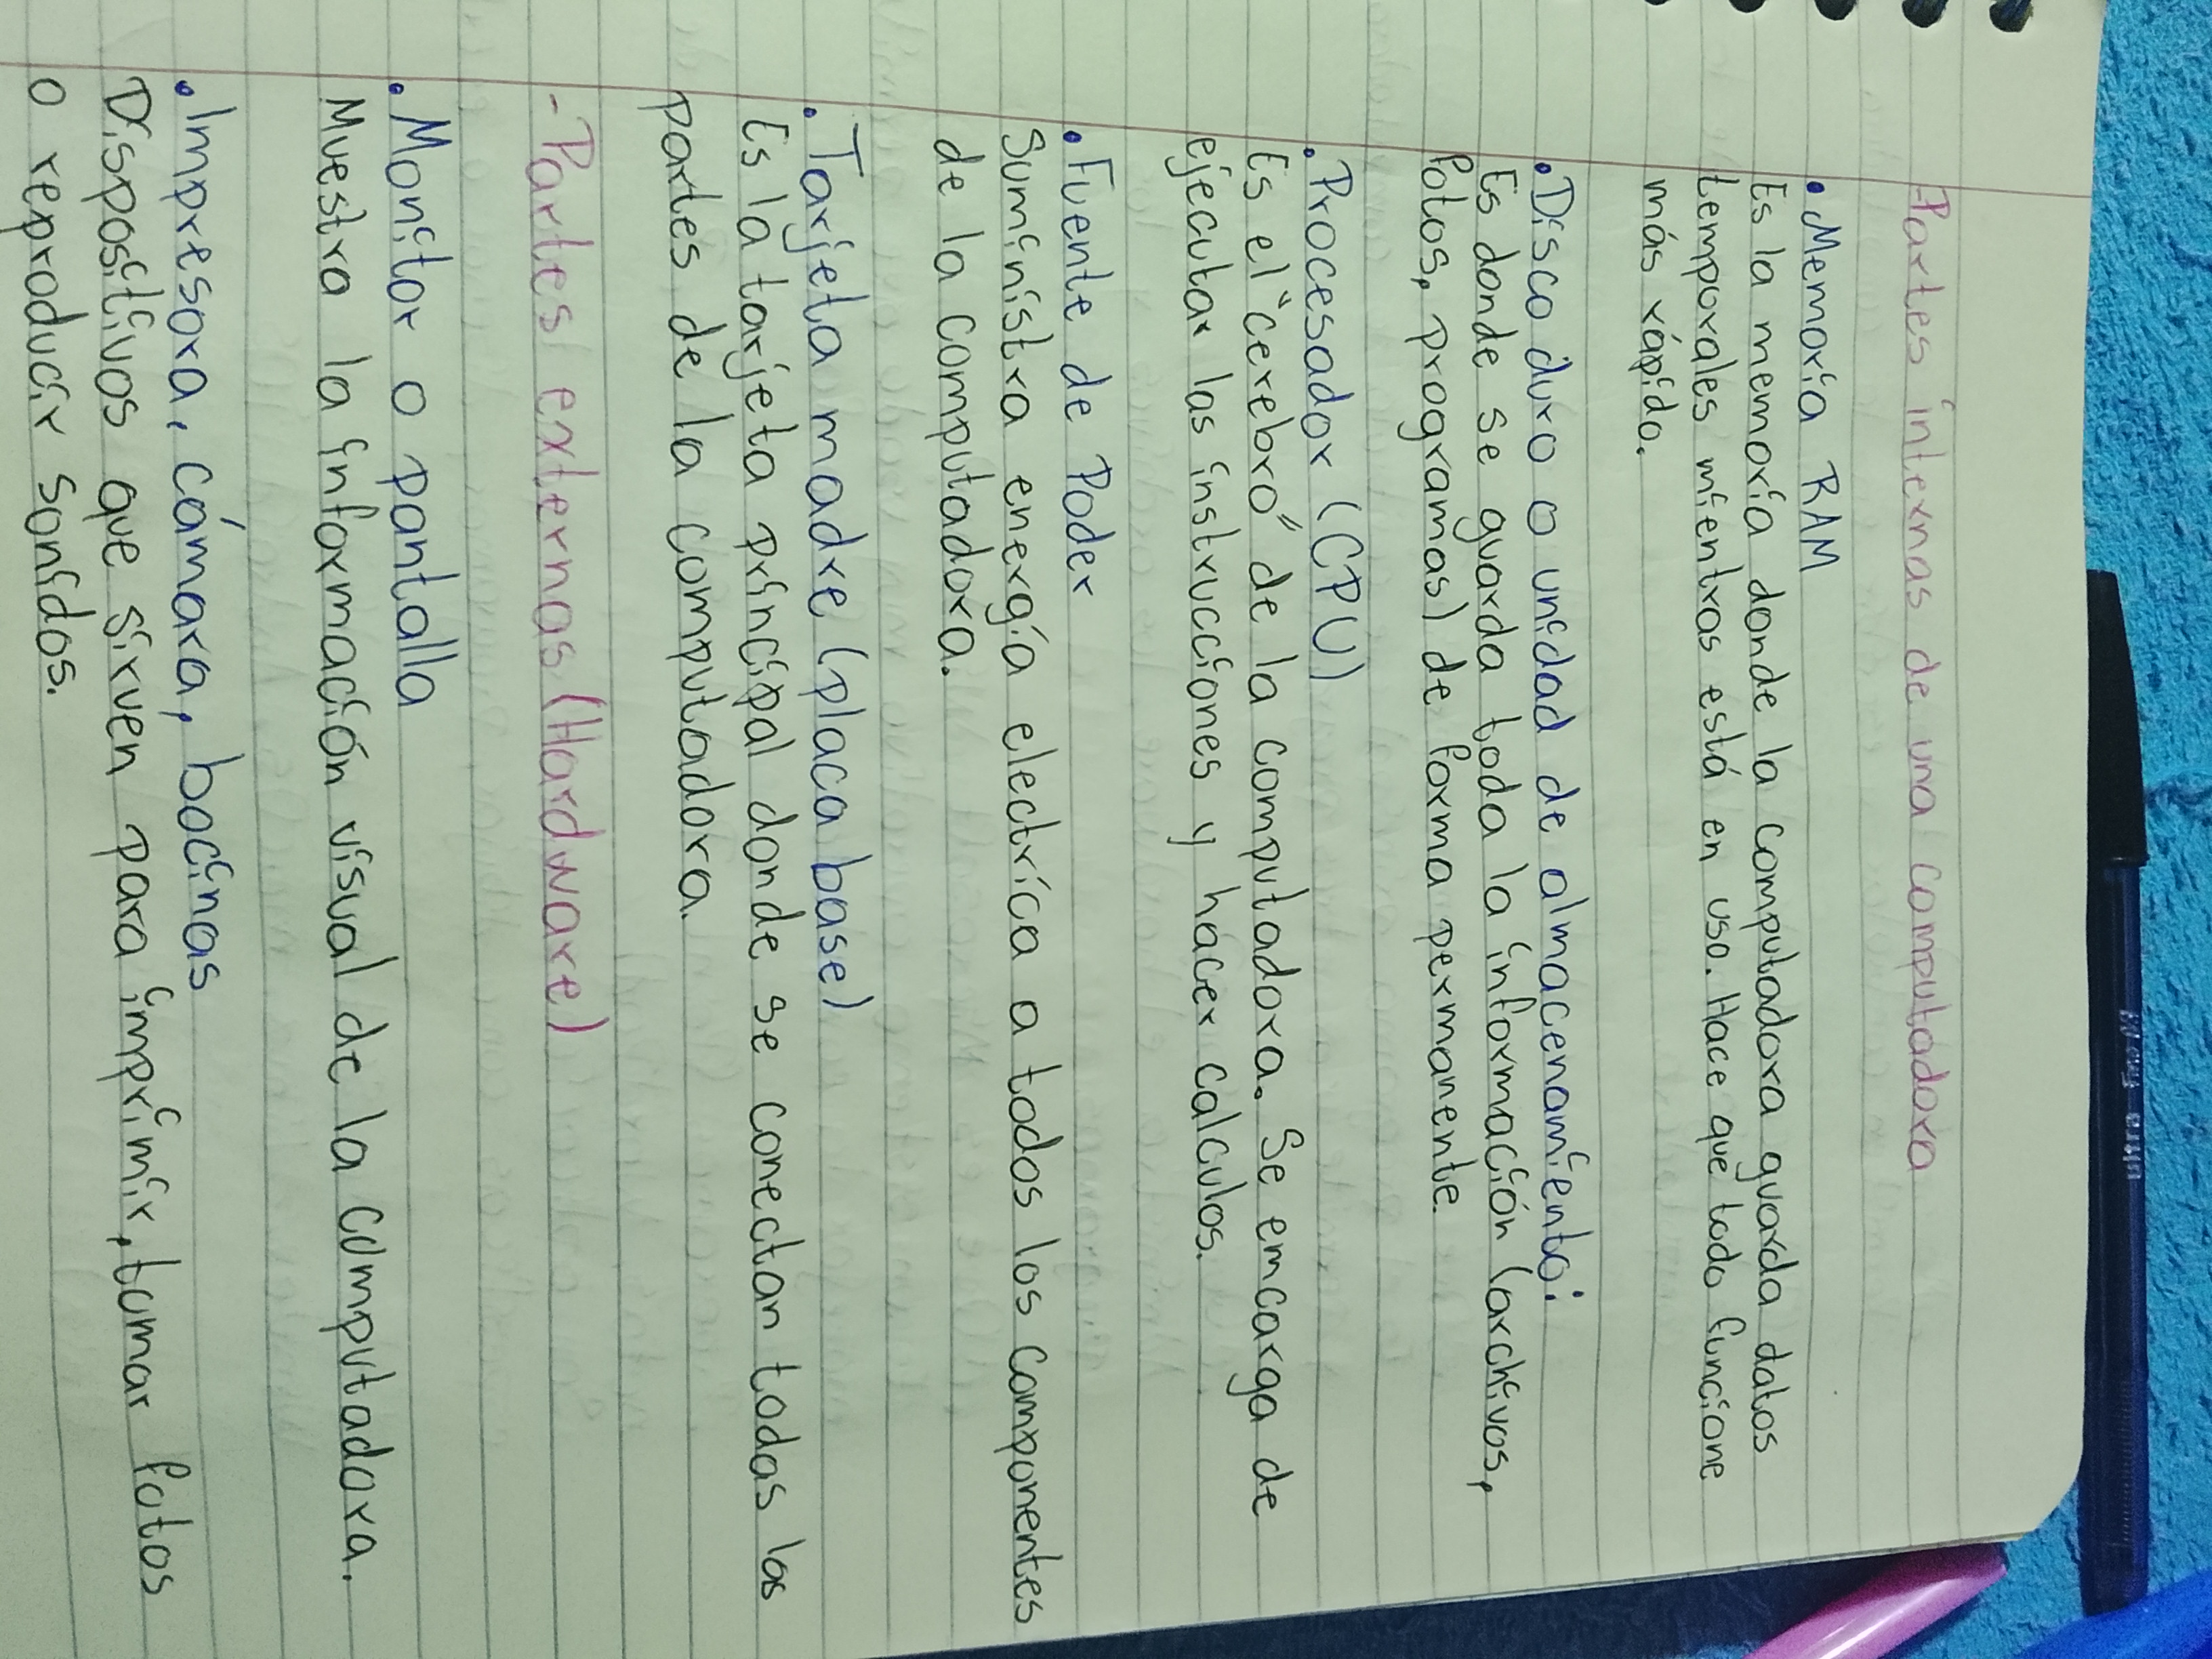 -Partes internas de una computadora
• Memoria RAM
Es la memoria donde la computadora guarda datos
temporales mientras está en uso. Hace que todo funcione
más rápido.
• Disco duro o unidad de almacenamiento:
Es donde se guarda toda la información (archivos,
fotos, programas) de forma permanente.
• Procesador (CPU)
Es el "cerebro" de la computadora. Se emcarga de
ejecutar las instrucciones y hacer calculos.
• Fuente de Poder
Suministra energía electríca a todos los componentes
de la computadora.
• Tarjeta madre (placa base)
Es la tarjeta principal donde se conectan todas las
partes de la computadora.
- Partes externas (Hardware)
• Monitor o pantalla
Muestra la información visual de la computadora.
• Impresora, cámara, bocinas
Dispositivos que sirven para imprimir, tomar fotos
o reproducir sonidos.